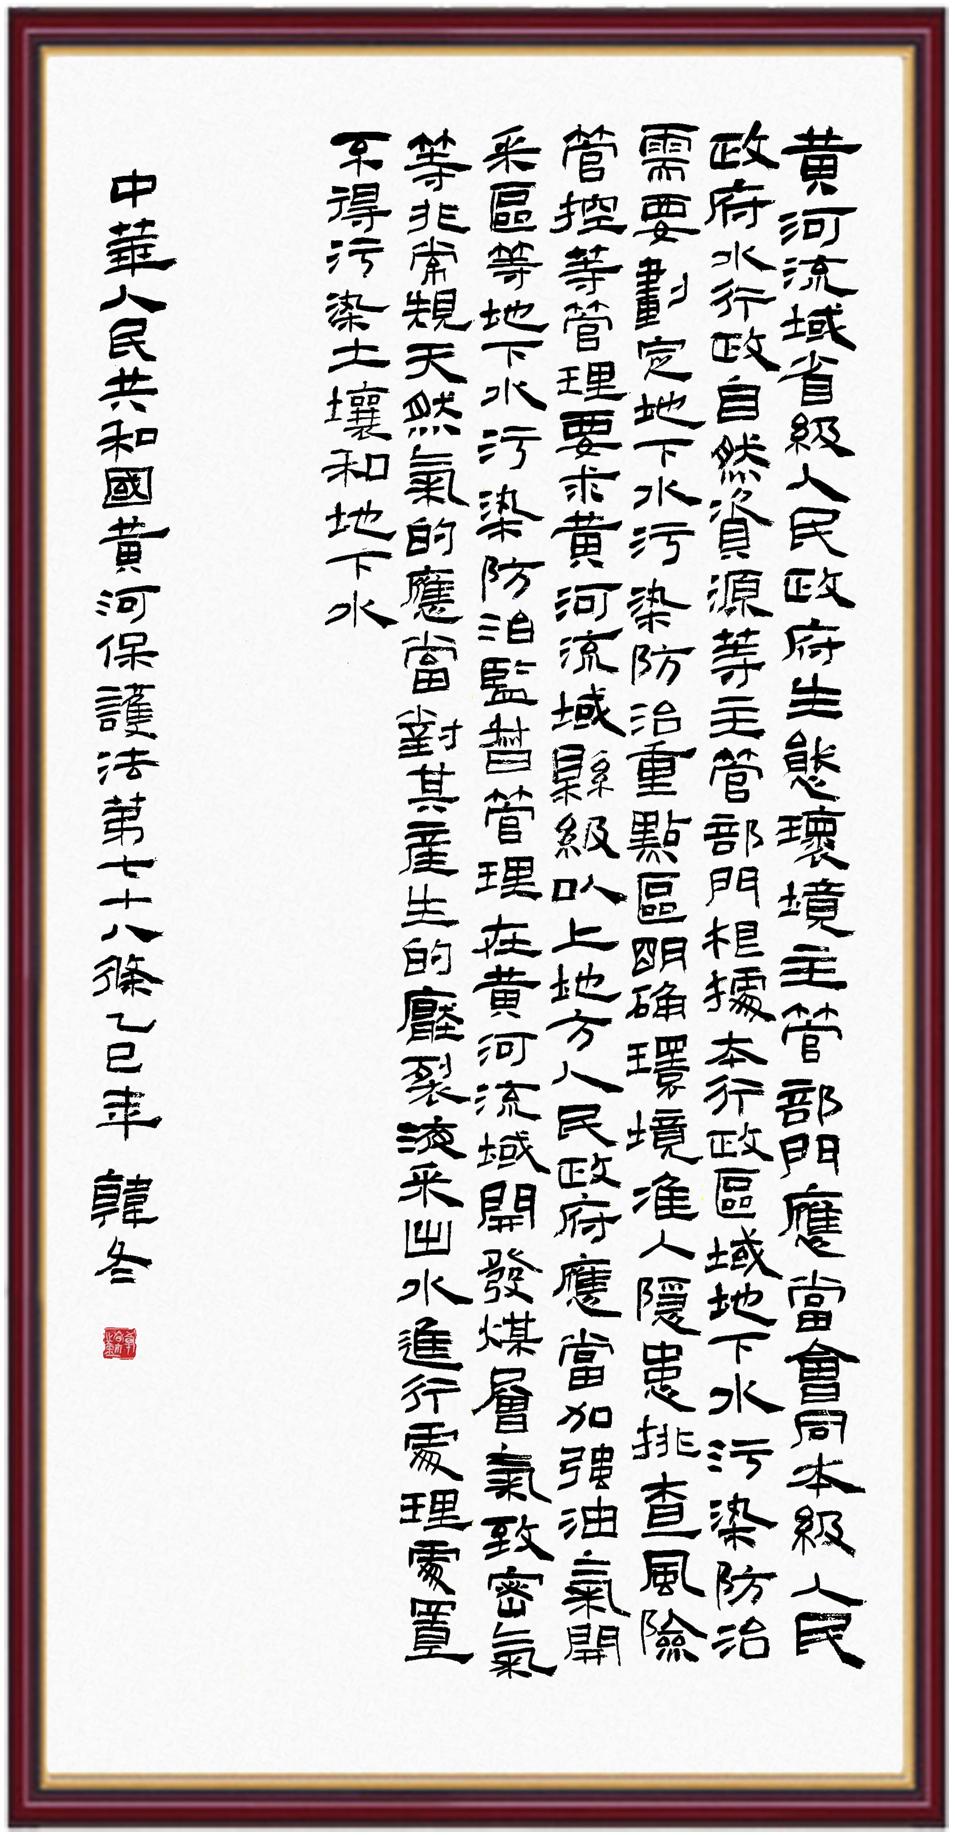 黃河流域省級人民政府生態環境主管部門應當會同本級人民
政府水行政自然資源等主管部門根據本行政區域地下水污染防治
需要劃定地下水污染防治重點區明確環境准入隱患排查風險
管控等管理要求黃河流域縣級以上地方人民政府應當加強油氣開
采區等地下水污染防治監督管理在黃河流域開發煤層氣致密氣
等非常規天然氣的應當對其產生的壓裂液采出水進行處理處置
不得污染土壤和地下水
中華人民共和國黃河保護法第七十八條乙巳年 韓冬